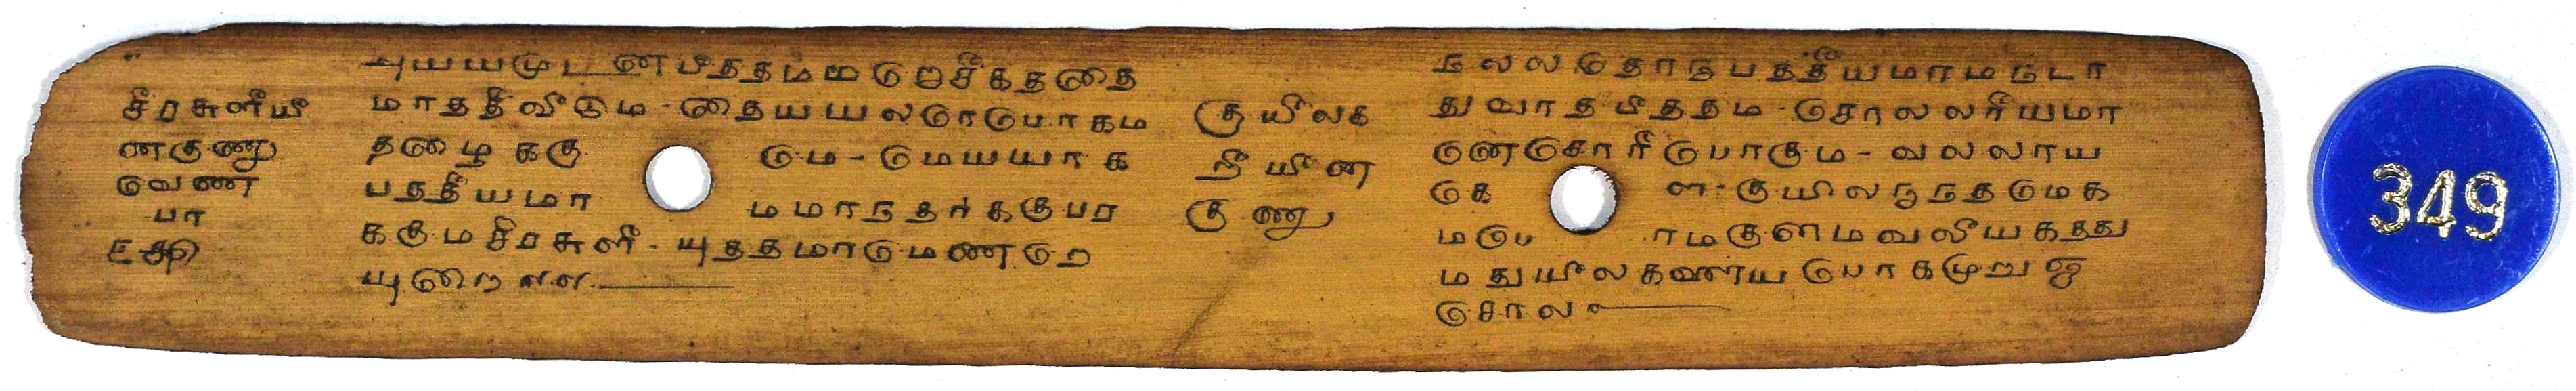 சீரசுளீயீ
ணகுணு
வெண
பா
அயயமுடனபீததமமடுறசீகததை
மாததீவீடும - தையயலொடுபாகம
தழைககு டும - டுமயயாக
பததீயமா மமாநதர்ககுபர
ககுமசீரசுளீ - யுததமாடுமணடுற
யுறை எஎ
குயீலக
நீயீன
குணு
நலலதொநபததீயமாமநடா
துவாதபீததம - சொலலரீயமா
ணெசொரீபொகும - வலலாய
கெ ள - குயிலநநதமெக
மபெ ாமகுளமவலீயகதது
மதுயீலகணாயபொகமுறுஜ
சொல
349